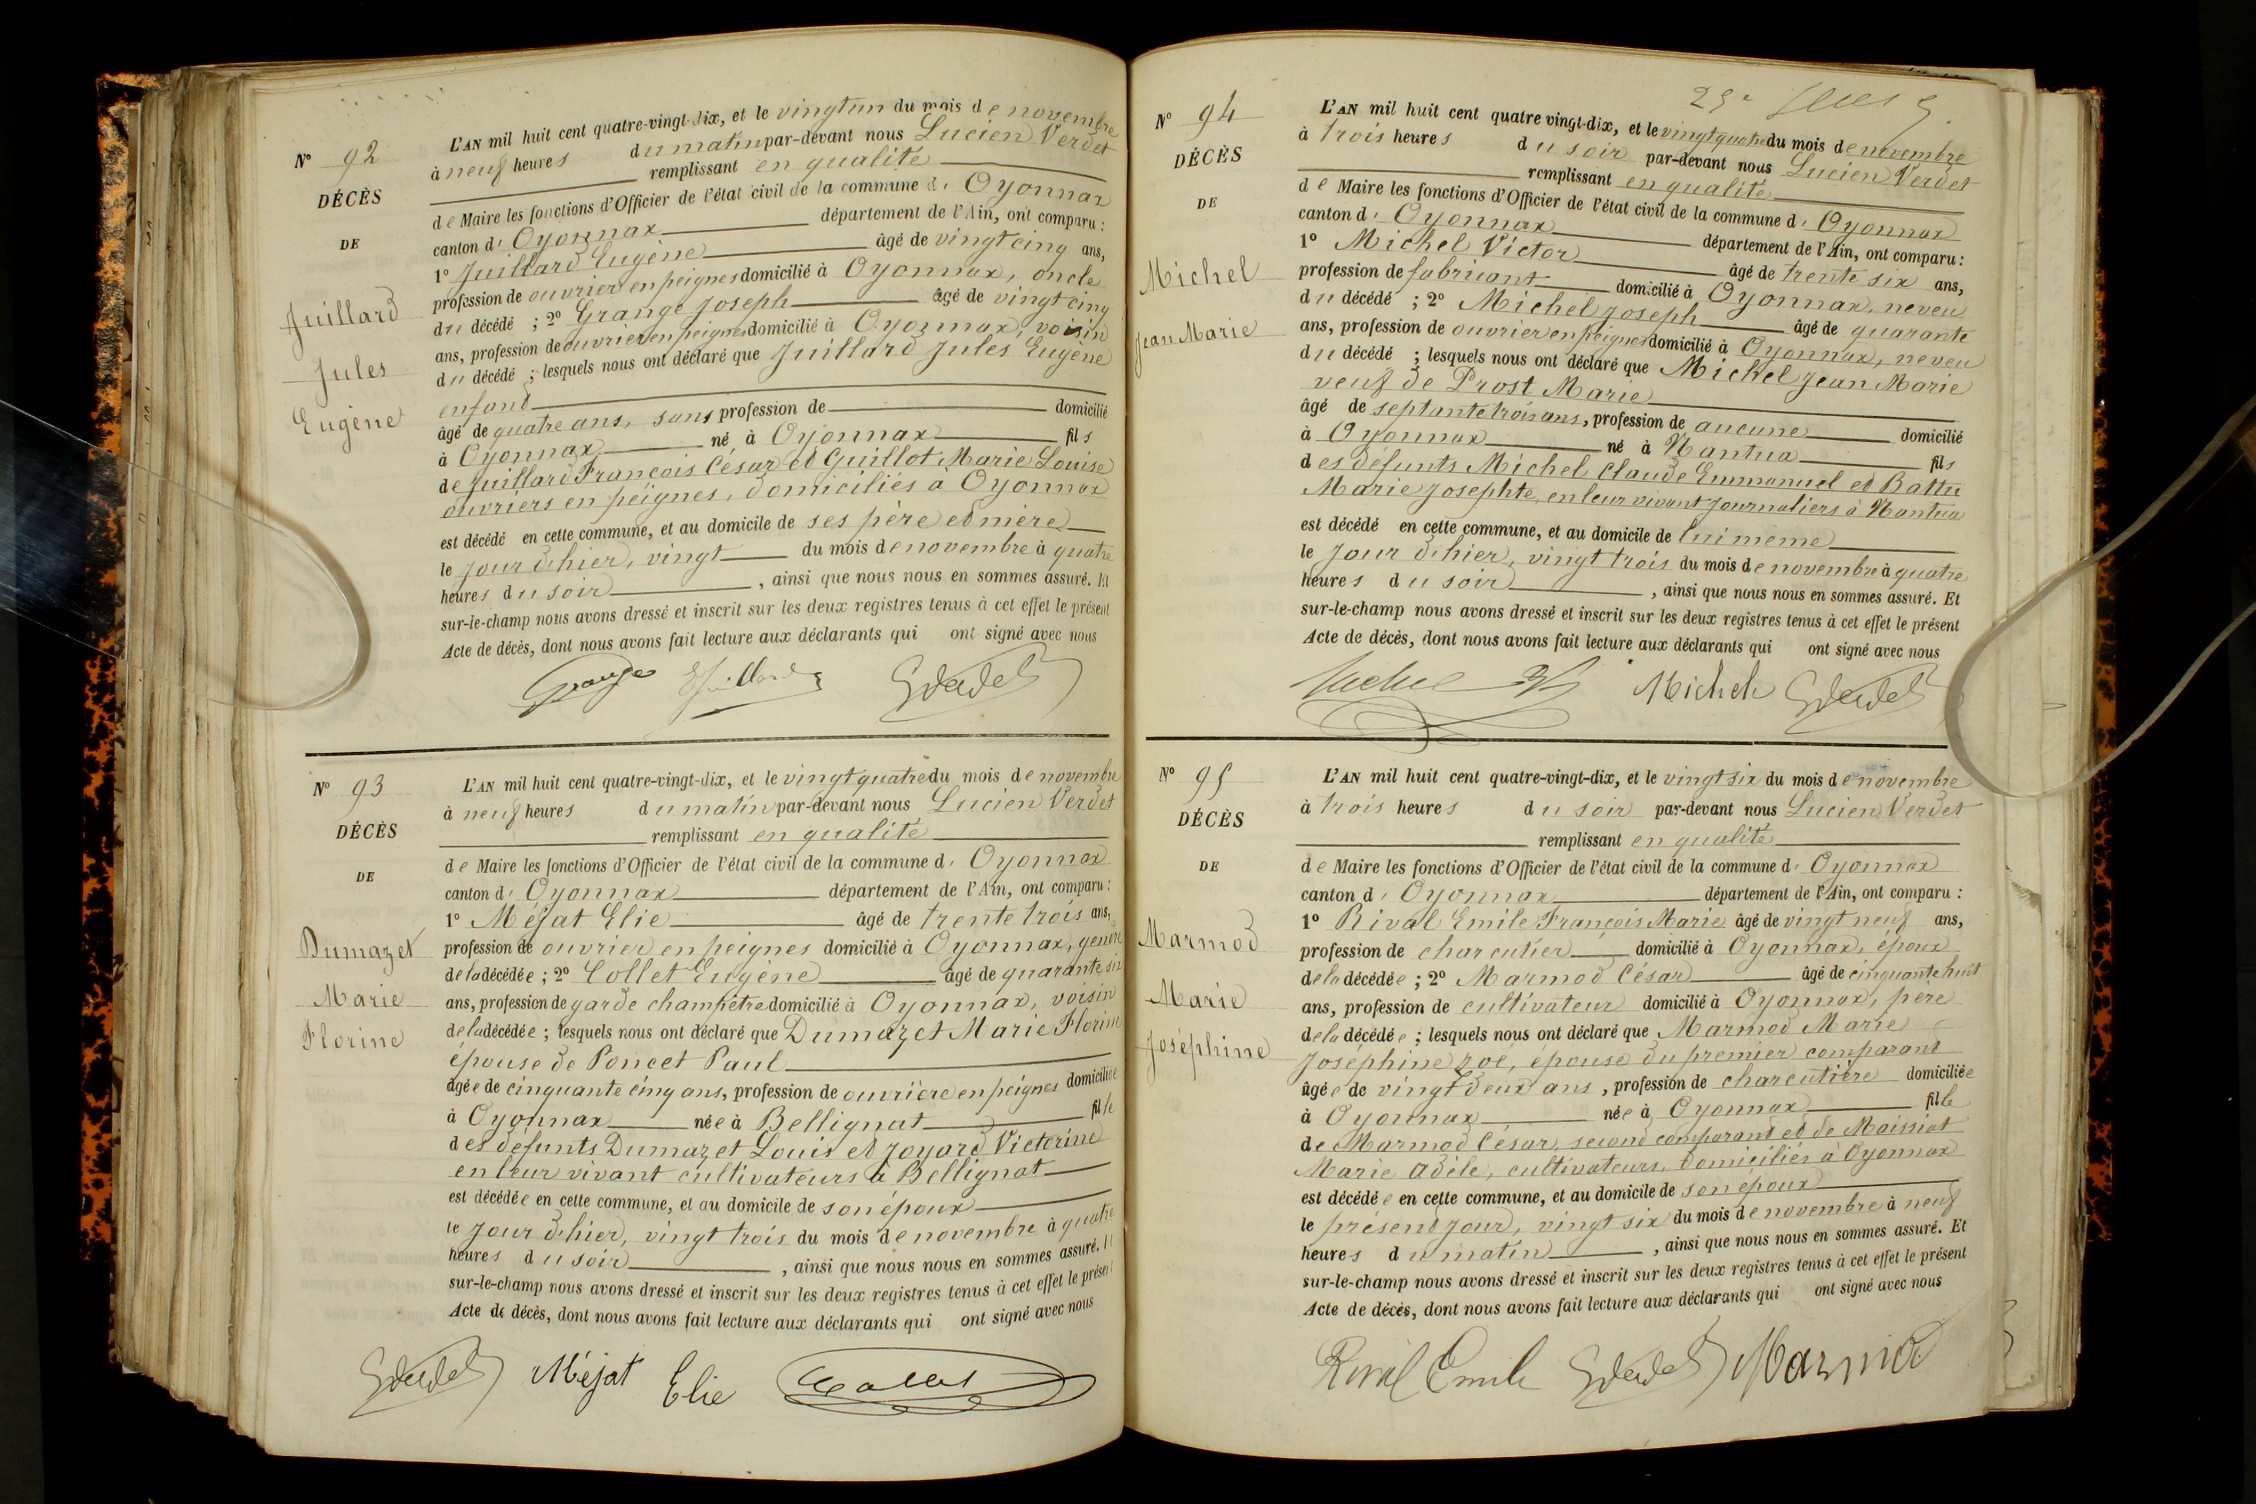 N° 92
DÉCÈS
DE
Juillard
Jules
Eugène
L'AN mil huit cent quatre-vingt-dix, et le vingt un du mois de novembre
à neuf heures du matin par-devant nous Lucien Verdet
remplissant en qualité
de Maire les fonctions d'Officier de l'état civil de la commune d' Oyonnax
canton d' Oyonnax département de l'Ain, ont comparu :
1° Juillard Eugène âgé de vingt cinq ans,
profession de ouvrier en peignes domicilié à Oyonnax, oncle
du décédé ; 2° Grange Joseph âgé de vingt cinq
ans, profession de ouvrier en peignes domicilié à Oyonnax, voisin
du décédé ; lesquels nous ont déclaré que Juillard Jules Eugène
enfant
âgé de quatre ans, sans profession de domicilié
à Oyonnax né à Oyonnax fils
de Juillard François César et Guillot Marie Louise
ouvriers en peignes, domiciliés à Oyonnax
est décédé en cette commune, et au domicile de ses père et mère
le jour d'hier, vingt du mois de novembre à quatre
heures du soir, ainsi que nous nous en sommes assuré. Et
sur-le-champ nous avons dressé et inscrit sur les deux registres tenus à cet effet le présent
Acte de décès, dont nous avons fait lecture aux déclarants qui ont signé avec nous
Grange EJuillard LVerdet
N° 93
DÉCÈS
DE
Dumazet
Marie
Florine
L'AN mil huit cent quatre-vingt-dix, et le vingt quatre du mois de novembre
à neuf heures du matin par-devant nous Lucien Verdet
remplissant en qualité
de Maire les fonctions d'Officier de l'état civil de la commune d' Oyonnax
canton d' Oyonnax département de l'Ain, ont comparu :
1° Méjat Elie âgé de trente trois ans,
profession de ouvrier en peignes domicilié à Oyonnax, gendre
de la décédée ; 2° Collet Eugène âgé de quarante six
ans, profession de garde champêtre domicilié à Oyonnax, voisin
de la décédée ; lesquels nous ont déclaré que Dumazet Marie Florine
épouse de Poncet Paul
âgée de cinquante cinq ans, profession de ouvrière en peignes domiciliée
à Oyonnax née à Bellignat fille
des défunts Dumazet Louis et Joyard Victorine
en leur vivant cultivateurs à Bellignat
est décédée en cette commune, et au domicile de son époux
le jour d'hier, vingt trois du mois de novembre à quatre
heures du soir, ainsi que nous nous en sommes assuré. Et
sur-le-champ nous avons dressé et inscrit sur les deux registres tenus à cet effet le présent
Acte de décès, dont nous avons fait lecture aux déclarants qui ont signé avec nous
LVerdet Méjat Elie Collet
N° 94
DÉCÈS
DE
Michel
Jean Marie
L'AN mil huit cent quatre vingt-dix, et le vingt quatre du mois de novembre
à trois heures du soir par-devant nous Lucien Verdet
remplissant en qualité
de Maire les fonctions d'Officier de l'état civil de la commune d' Oyonnax
canton d' Oyonnax département de l'Ain, ont comparu :
1° Michel Victor âgé de trente six ans,
profession de fabricant domicilié à Oyonnax, neveu
du décédé ; 2° Michel Joseph âgé de quarante
ans, profession de ouvrier en peignes domicilié à Oyonnax, neveu
du décédé ; lesquels nous ont déclaré que Michel Jean Marie
veuf de Prost Marie
âgé de septante trois ans, profession de aucune domicilié
à Oyonnax né à Nantua fils
des défunts Michel Claude Emmanuel et Battu
Marie Josephte, en leur vivant journaliers à Nantua
est décédé en cette commune, et au domicile de lui même
le jour d'hier, vingt trois du mois de novembre à quatre
heures du soir, ainsi que nous nous en sommes assuré. Et
sur-le-champ nous avons dressé et inscrit sur les deux registres tenus à cet effet le présent
Acte de décès, dont nous avons fait lecture aux déclarants qui ont signé avec nous
Michel Michel LVerdet
N° 95
DÉCÈS
DE
Marmod
Marie
Joséphine
L'AN mil huit cent quatre-vingt-dix, et le vingt six du mois de novembre
à trois heures du soir par-devant nous Lucien Verdet
remplissant en qualité
de Maire les fonctions d'Officier de l'état civil de la commune d' Oyonnax
canton d' Oyonnax département de l'Ain, ont comparu :
1° Rival Emile François Marie âgé de vingt neuf ans,
profession de charcutier domicilié à Oyonnax, époux
de la décédée ; 2° Marmod César âgé de cinquante huit
ans, profession de cultivateur domicilié à Oyonnax, père
de la décédée ; lesquels nous ont déclaré que Marmod Marie
Joséphine Zoé, épouse du premier comparant
âgée de vingt deux ans, profession de charcutière domiciliée
à Oyonnax née à Oyonnax fille
de Marmod César, second comparant et de Moissiat
Marie Adèle, cultivateurs, domiciliés à Oyonnax
est décédée en cette commune, et au domicile de son époux
le présent jour, vingt six du mois de novembre à neuf
heures du matin, ainsi que nous nous en sommes assuré. Et
sur-le-champ nous avons dressé et inscrit sur les deux registres tenus à cet effet le présent
Acte de décès, dont nous avons fait lecture aux déclarants qui ont signé avec nous
Rival Emile LVerdet Marmod